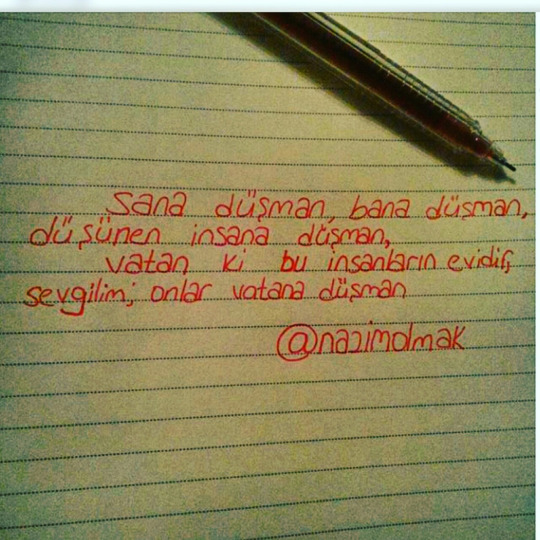 sana düşman, bana düşman,
düşünen insana düşman,
vatan ki bu insanların evidir,
sevgilim; onlar vatana düşman
@nazimolmak